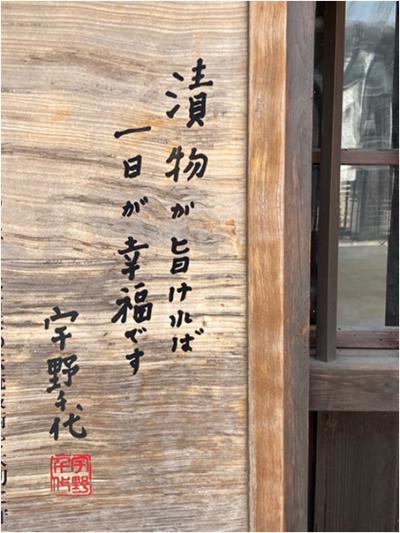 漬物が旨ければ
一日が幸福です
宇野千代
宇野
千代